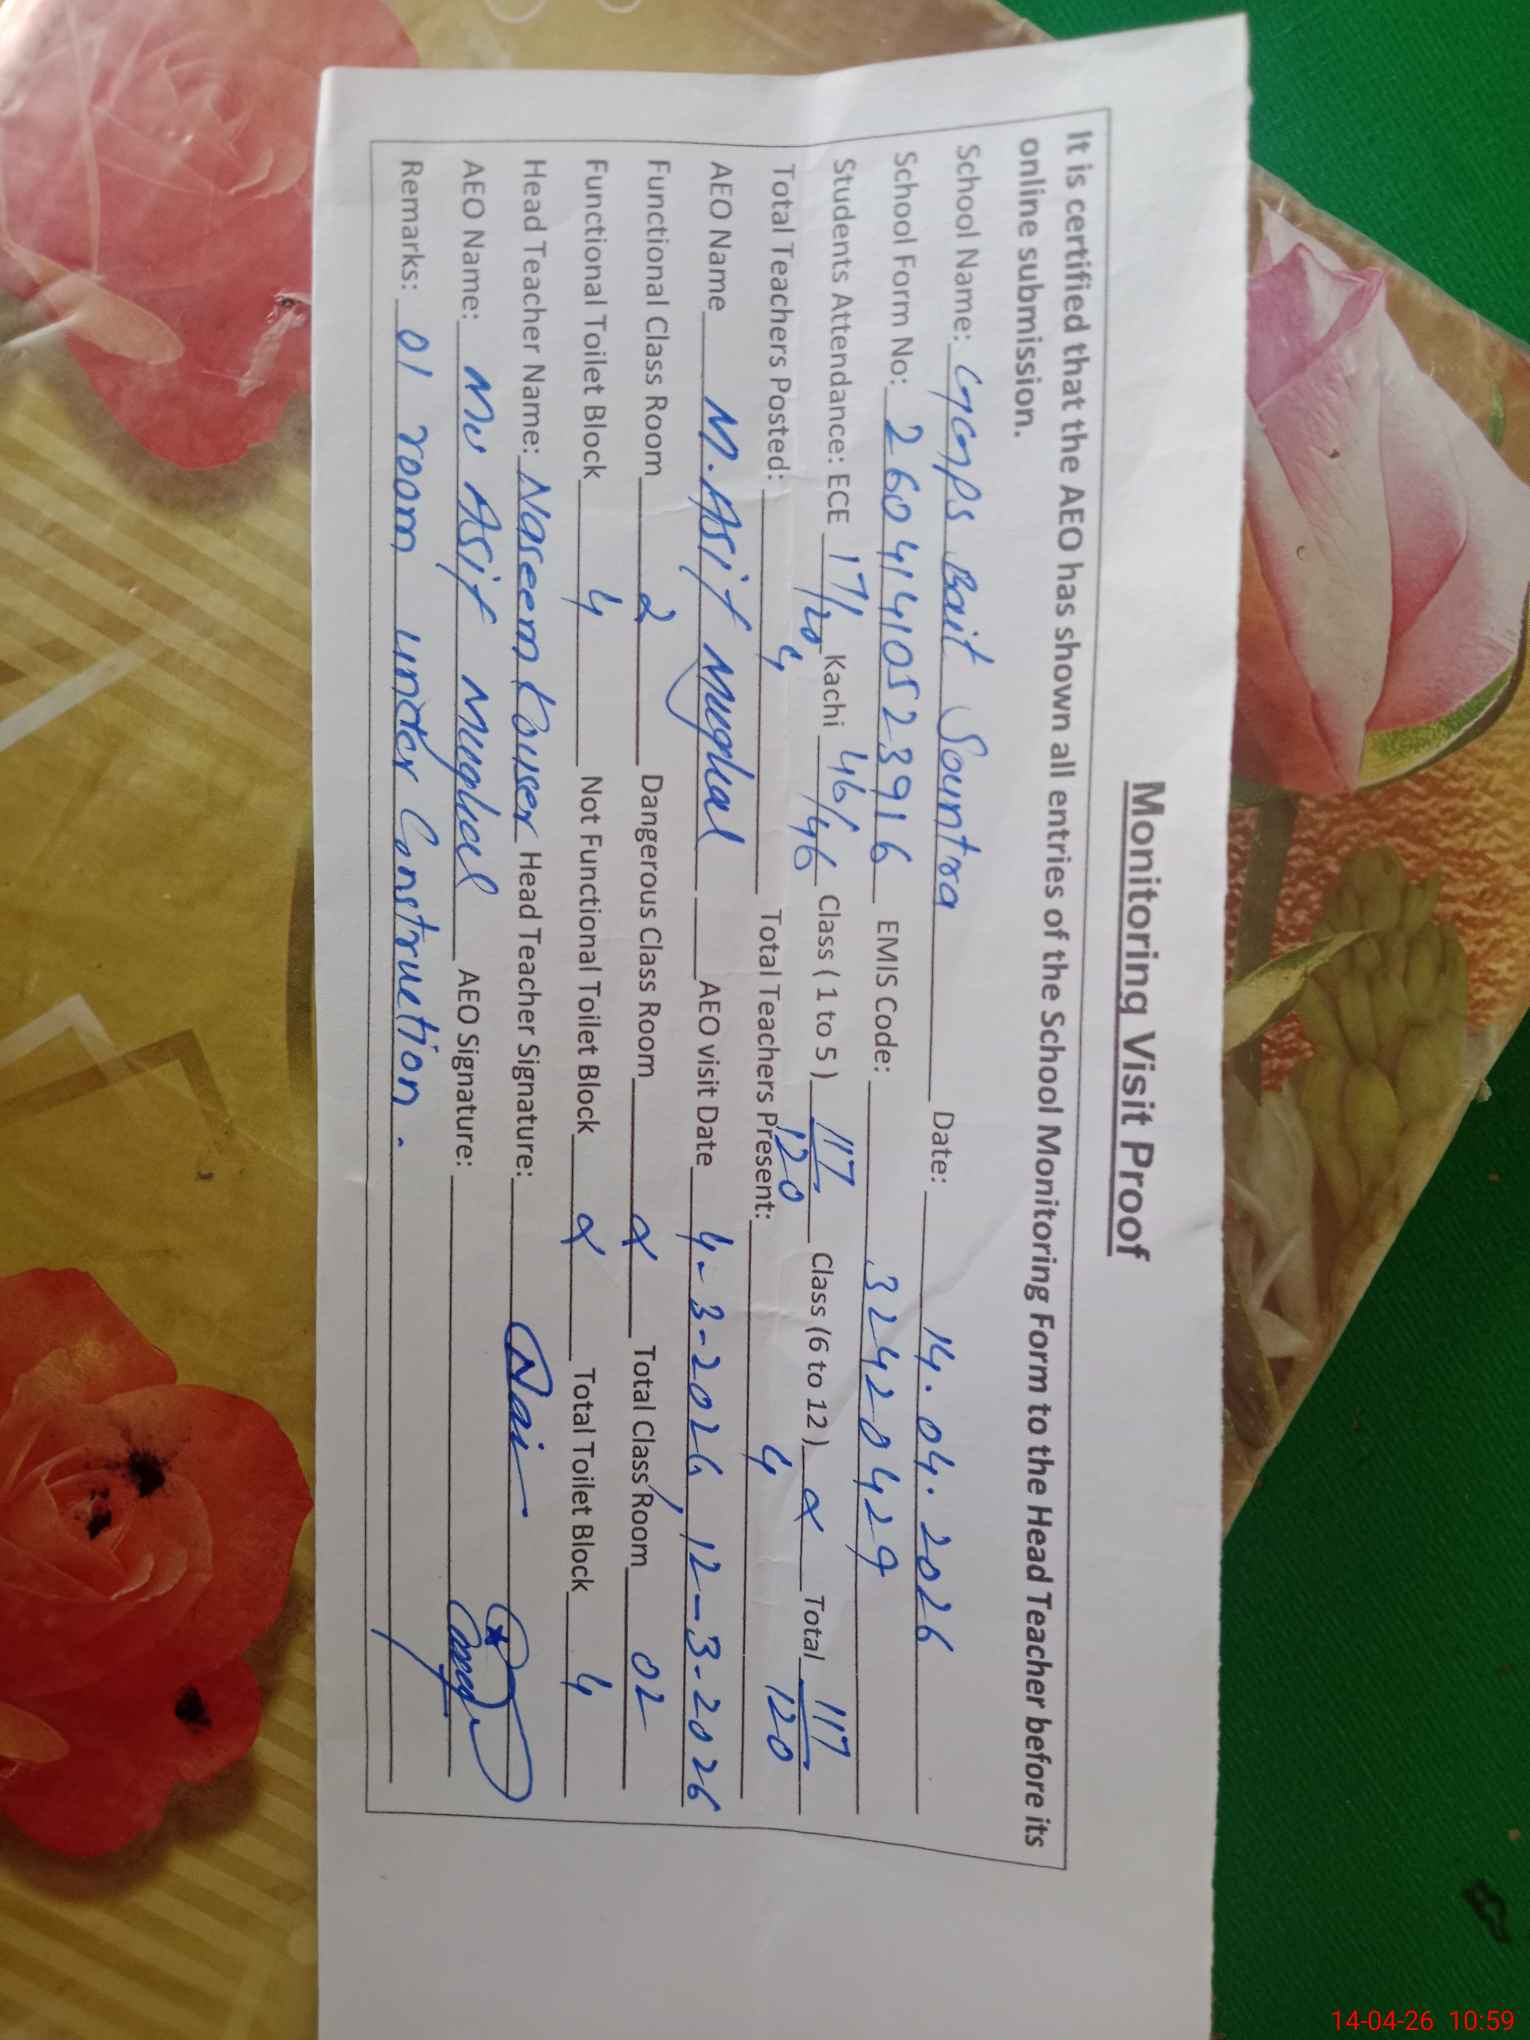 Monitoring Visit Proof
It is certified that the AEO has shown all entries of the School Monitoring Form to the Head Teacher before its
online submission.
School Name: GGMPS Bait Sountra Date: 14.04.2026
School Form No: 26041410523916 EMIS Code: 32420429
Students Attendance: ECE 17/20 Kachi 46/46 Class ( 1 to 5 ) 117/120 Class (6 to 12 ) x Total 117/120
Total Teachers Posted: 4 Total Teachers Present: 4
AEO Name M.Asif Mughal AEO visit Date 4-3-2026, 12-3-2026
Functional Class Room 2 Dangerous Class Room x Total Class Room 02
Functional Toilet Block 4 Not Functional Toilet Block x Total Toilet Block 4
Head Teacher Name: Naseem Kouser Head Teacher Signature:
AEO Name: Mr Asif Mughal AEO Signature:
Remarks: 01 room under Construction.
14-04-26 10:59